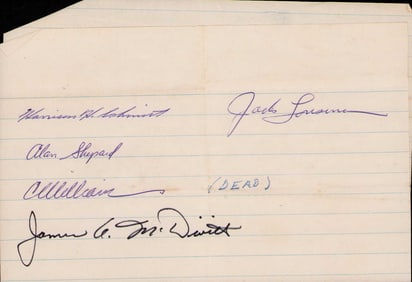 Harrison H. Schmitt
Jack Lousma
Alan Shepard
CCWilliams
(DEAD)
James A. McDivitt